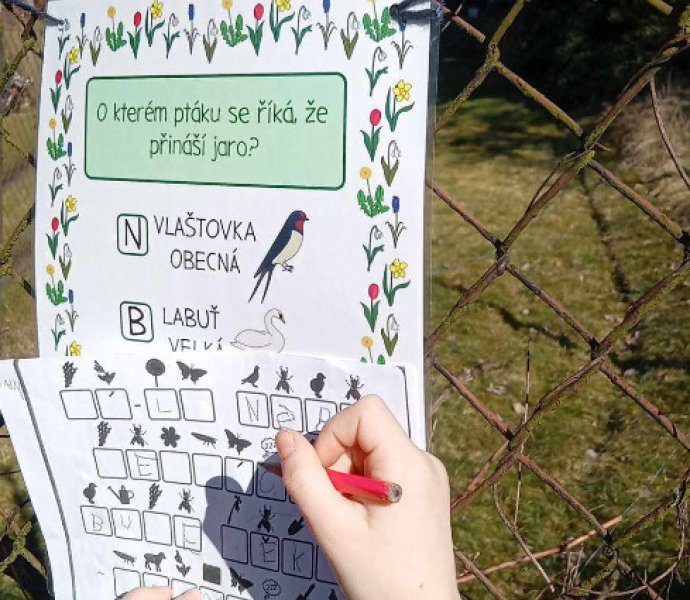 O kterém ptáku se říká, že
přináší jaro?
N VLAŠTOVKA
OBECNÁ
B LABUŤ
VELKÁ
- L N A D
E
B U D E
Ě K